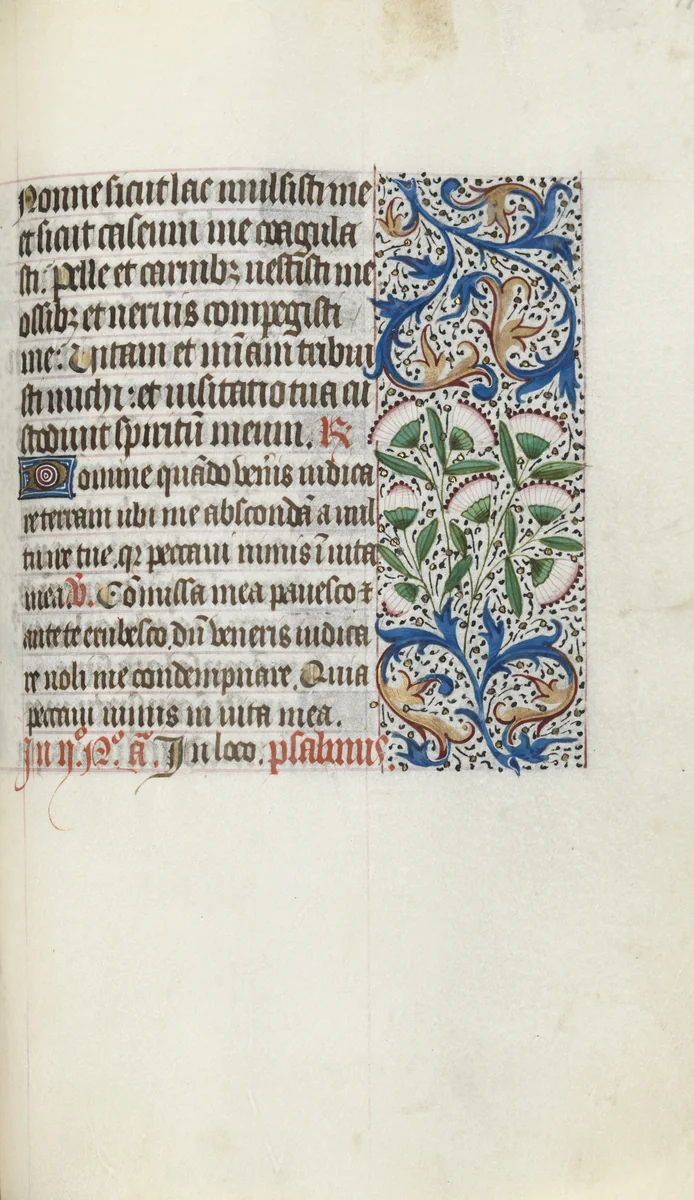 Nonne sicut lac mulsisti me
et sicut caseum me coagula
sti. Pelle et carnibꝫ uestisti me
ossibꝫ et neruis compegisti
me: Uitam et mīam tribui
sti michi: et uisitatio tua cu
stodiuit spiritū meum. R
Domine quādo veneris iudica
re terram ubi me abscondā a uul
tu ire tue, qꝛ peccaui nimis ī uita
mea. V. Cōmissa mea pauesco ⁊
ante te erubesco, dū veneris iudica
re noli me condempnare. Quia
peccaui nimis in uita mea.
In ijº. Nº. ā. In loco. psalmus.